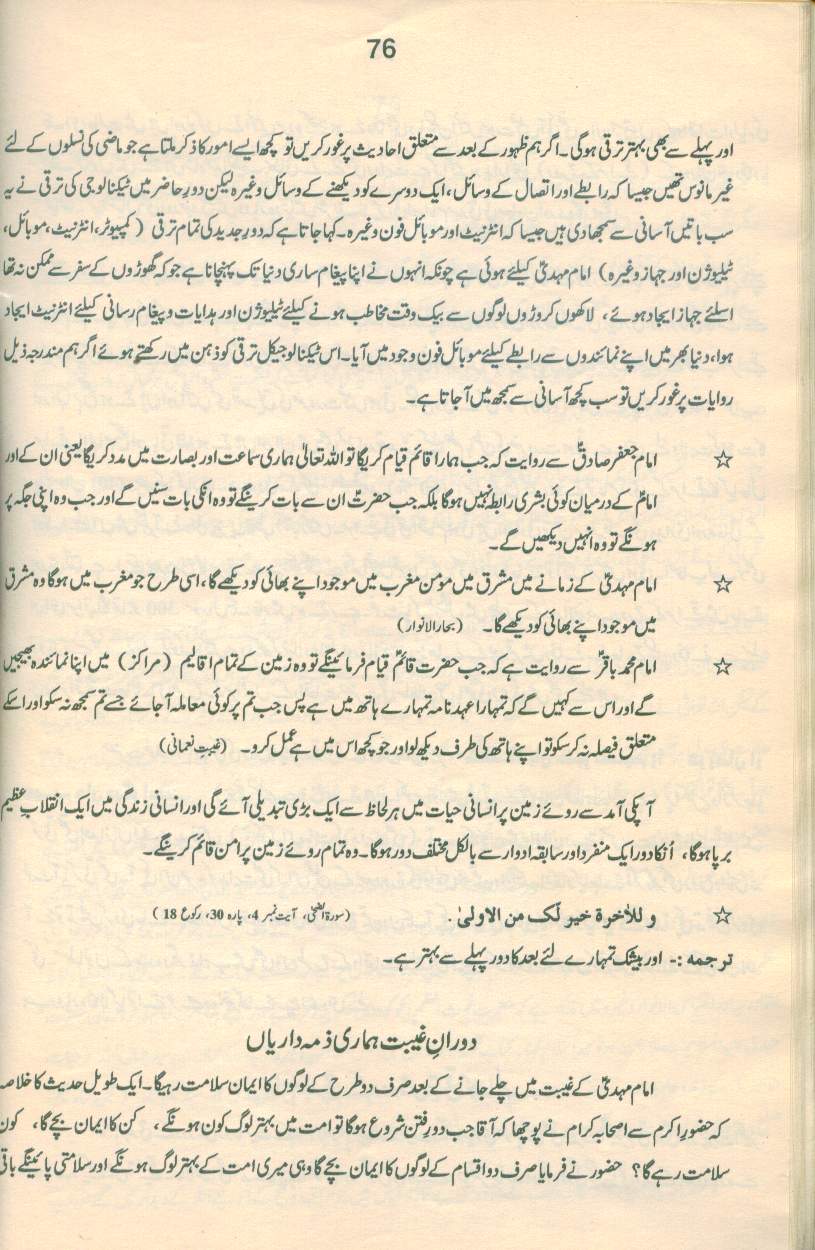 76
اور پہلے سے بھی بہتر ترقی ہوگی۔ اگر ہم ظہور کے بعد سے متعلق احادیث پر غور کریں تو کچھ ایسے امور کا ذکر ملتا ہے جو ماضی کی نسلوں کے لئے
غیر مانوس تھیں جیسا کہ رابطے اور اتصال کے وسائل، ایک دوسرے کو دیکھنے کے وسائل وغیرہ لیکن دورِ حاضر میں ٹیکنالوجی کی ترقی نے یہ
سب باتیں آسانی سے سمجھا دی ہیں جیسا کہ انٹرنیٹ اور موبائل فون وغیرہ۔ کہا جاتا ہے کہ دورِ جدید کی تمام ترقی (کمپیوٹر، انٹرنیٹ، موبائل،
ٹیلیوژن اور جہاز وغیرہ) امام مہدیؑ کیلئے ہوئی ہے چونکہ انہوں نے اپنا پیغام ساری دنیا تک پہنچانا ہے جو کہ گھوڑوں کے سفر سے ممکن نہ تھا
اسلئے جہاز ایجاد ہوئے، لاکھوں کروڑوں لوگوں سے بیک وقت مخاطب ہونے کیلئے ٹیلیوژن اور ہدایات و پیغام رسانی کیلئے انٹرنیٹ ایجاد
ہوا، دنیا بھر میں اپنے نمائندوں سے رابطے کیلئے موبائل فون وجود میں آیا۔ اس ٹیکنالوجیکل ترقی کو ذہن میں رکھتے ہوئے اگر ہم مندرجہ ذیل
روایات پر غور کریں تو سب کچھ آسانی سے سمجھ میں آ جاتا ہے۔
☆ امام جعفر صادقؑ سے روایت کہ جب ہمارا قائم قیام کریگا تو اللہ تعالیٰ ہماری سماعت اور بصارت میں مدد کریگا یعنی ان کے اور
امامؑ کے درمیان کوئی بشری رابطہ نہیں ہوگا بلکہ جب حضرتؑ ان سے بات کرینگے تو وہ انکی بات سنیں گے اور جب وہ اپنی جگہ پر
ہونگے تو وہ انہیں دیکھیں گے۔
☆ امام مہدیؑ کے زمانے میں مشرق میں مؤمن مغرب میں موجود اپنے بھائی کو دیکھے گا، اسی طرح جو مغرب میں ہوگا وہ مشرق
میں موجود اپنے بھائی کو دیکھے گا۔ (بحار الانوار)
☆ امام محمد باقرؑ سے روایت ہے کہ جب حضرت قائمؑ قیام فرمائینگے تو وہ زمین کے تمام اقالیم (مراکز) میں اپنا نمائندہ بھیجیں
گے اور اس سے کہیں گے کہ تمہارا عہد نامہ تمہارے ہاتھ میں ہے پس جب تم پر کوئی معاملہ آ جائے جسے تم سمجھ نہ سکو اور اسکے
متعلق فیصلہ نہ کر سکو تو اپنے ہاتھ کی طرف دیکھ لو اور جو کچھ اس میں ہے عمل کرو۔ (غیبت نعمانی)
آپکی آمد سے روئے زمین پر انسانی حیات میں ہر لحاظ سے ایک بڑی تبدیلی آئے گی اور انسانی زندگی میں ایک انقلابِ عظیم
برپا ہوگا، اُنکا دور ایک منفرد اور سابقہ ادوار سے بالکل مختلف دور ہوگا۔ وہ تمام روئے زمین پر امن قائم کرینگے۔
☆ و للاٰخرة خیر لک من الاولیٰ . (سورۃ الضحیٰ، آیت نمبر 4، پارہ 30، رکوع 18)
ترجمہ :- اور بیشک تمہارے لئے بعد کا دور پہلے سے بہتر ہے۔
دورانِ غیبت ہماری ذمہ داریاں
امام مہدیؑ کے غیبت میں چلے جانے کے بعد صرف دو طرح کے لوگوں کا ایمان سلامت رہیگا۔ ایک طویل حدیث کا خلاصہ
کہ حضورِ اکرم سے اصحابہ کرام نے پوچھا کہ آقا جب دورِ فتن شروع ہوگا تو امت میں بہتر لوگ کون ہونگے، کن کا ایمان بچے گا، کون
سلامت رہے گا؟ حضور نے فرمایا صرف دو اقسام کے لوگوں کا ایمان بچے گا وہی میری امت کے بہتر لوگ ہونگے اور سلامتی پائینگے باقی